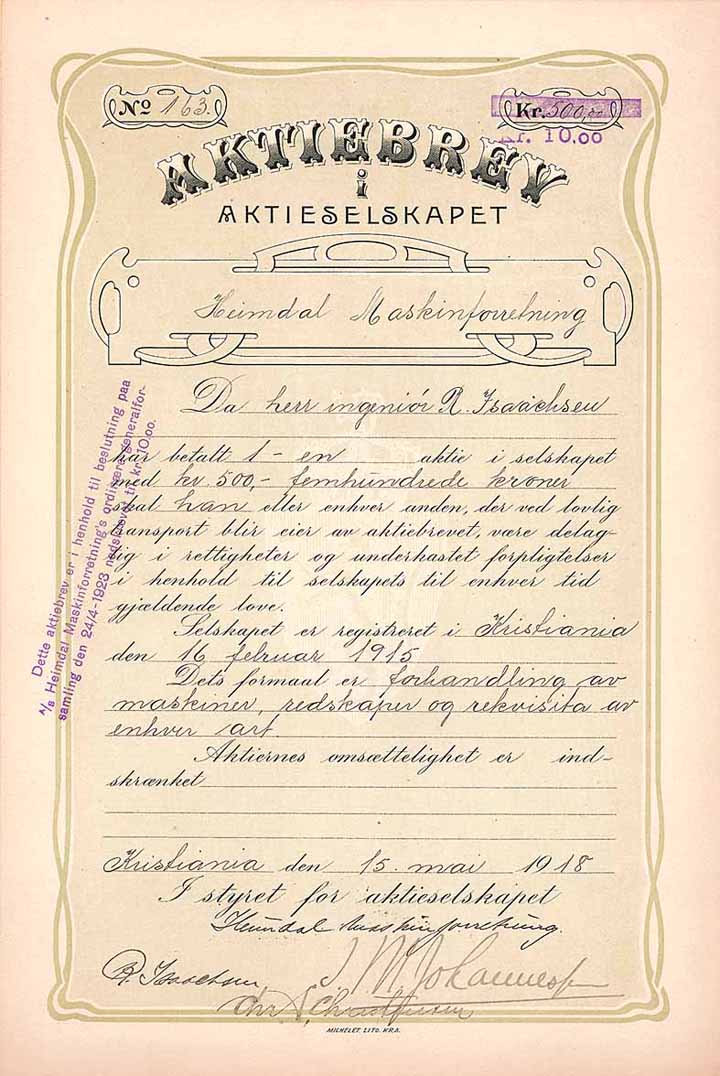 No 163.
Kr. 500,00
Kr. 10.00
AKTIEBREV
i
AKTIESELSKAPET
Heimdal Maskinforretning
Da herr ingeniør R. Isaachsen
har betalt 1 - en aktie i selskapet
med kr. 500,- femhundrede kroner
skal han eller enhver anden, der ved lovlig
transport blir eier av aktiebrevet, være delag-
tig i rettigheter og underkastet forpligtelser
i henhold til selskapets til enhver tid
gjældende love.
Selskapet er registreret i Kristiania
den 16 februar 1915
Dets formaal er forhandling av
maskiner, redskaper og rekvisita av
enhver art.
Aktiernes omsættelighet er ind-
skrænket
Kristiania den 15. mai 1918
I styret for aktieselskapet
Heimdal Maskinforretning.
R. Isaachsen
J M Johannesen
Chr
MILHELET. LITO. KRA.
Dette aktiebrev er i henhold til beslutning paa
A/s Heimdal Maskinforretning's ordinære generalfor-
samling den 24/4-1923 nedskrevet til kr. 10.00.